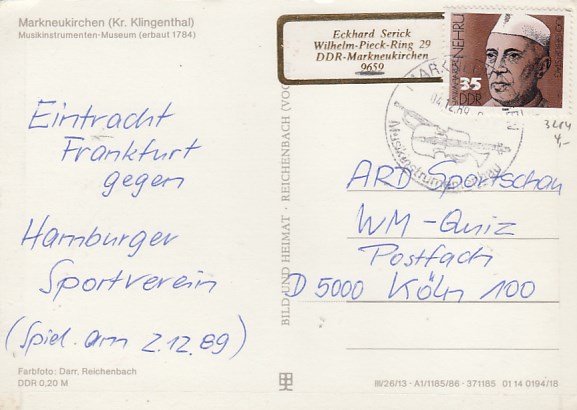 Markneukirchen (Kr. Klingenthal)
Musikinstrumenten-Museum (erbaut 1784)
Eckhard Serick
Wilhelm-Pieck-Ring 29
DDR-Markneukirchen
9659
NEHRU
35
DDR
Musikinstrumentenbau
3284
4,-
Eintracht
Frankfurt
gegen
Hamburger
Sportverein
(Spiel am 2.12.89)
BILD UND HEIMAT · REICHENBACH (VOGTL)
ARD Sportschau
WM-Quiz
Postfach
D 5000 Köln 100
Farbfoto: Darr, Reichenbach
DDR 0,20 M
III/26/13 · A1/1185/86 · 371185 01 14 0194/18